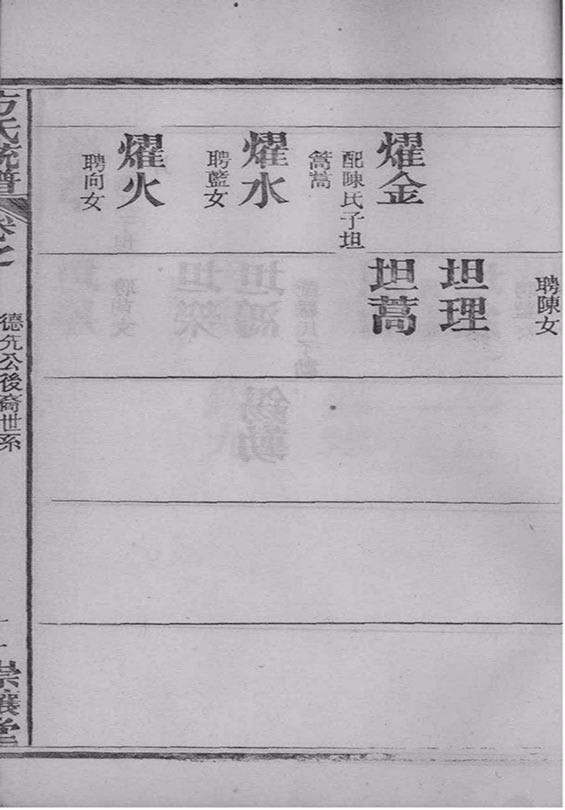 燿金
配陳氏子坦
篙蒿
燿水
聘藍女
燿火
聘向女
聘陳女
坦理
坦蒿
方氏統譜
卷之
德允公後裔世系
崇讓堂